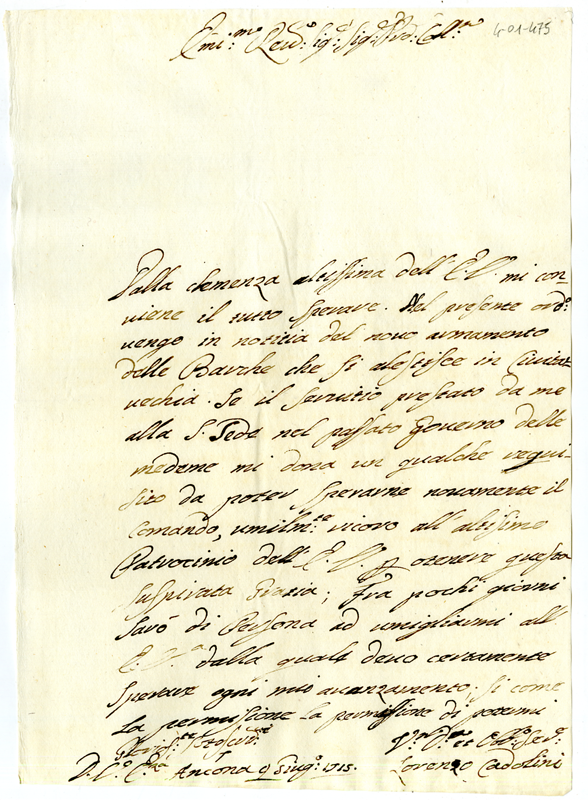 401-475
Emi:mo Reud:o Sig:r Sig:r Pro: Coll:mo
Dalla clemenza altissima dell' E. V. mi con
uiene il tutto sperare. Nel presente ord:o
uengo in notitia del nouo armamento
delle Barche che si alestisce in Ciuita
uechia. Se il seruitio prestato da me
alla S. Sede nel passato Gouerno delle
medeme mi dona un qualche requi
sito da poter sperarne nouamente il
Comando, umilm:te ricoro all' altissimo
Patrocinio dell' E. V. p otenere questa
suspirata Grazia; Fra pochi giorni
sarò di Persona ad umigliarmi all
E. V.a dalla quale deuo certamente
sperare ogni mio auanzamento; si come
la permissione la permissione di potermi
D. V. E.za Ancona 9 Giug:o 1715.
Lorenzo Cadolini